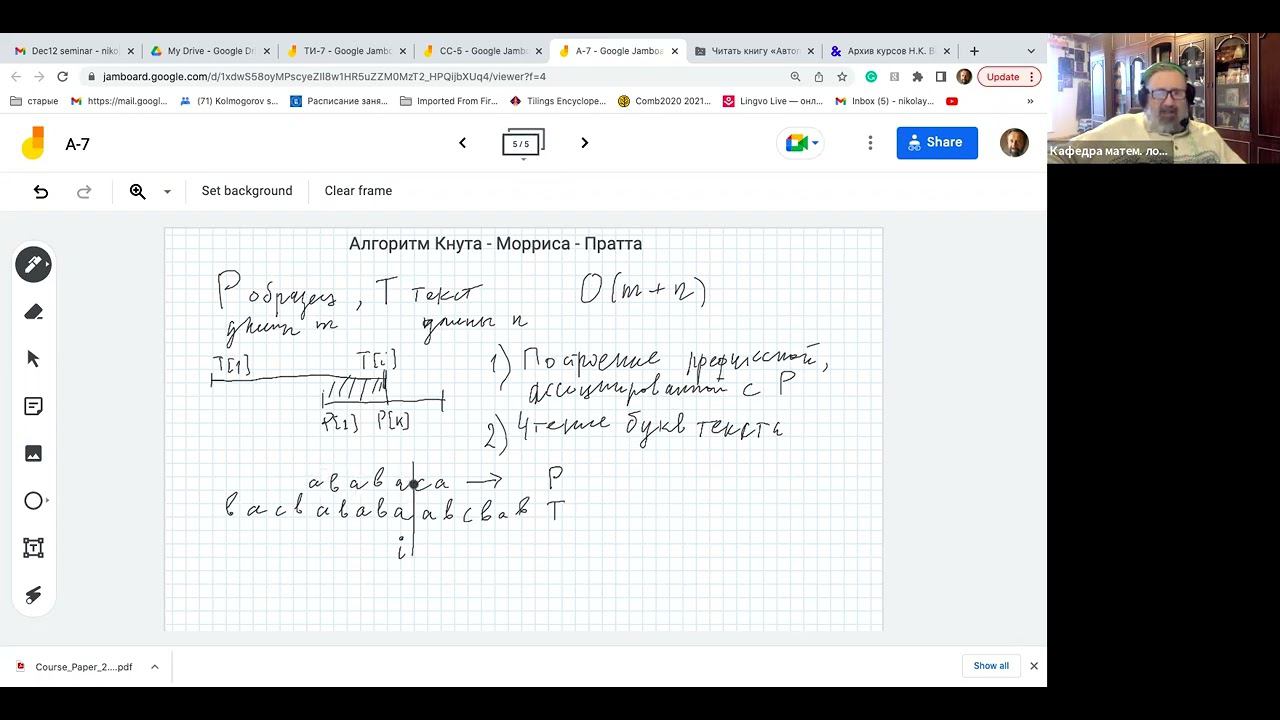 Dec12 seminar - niko
My Drive - Google Dri
ТИ-7 - Google Jambo
СС-5 - Google Jambo
А-7 - Google Jamboa
Читать книгу «Автоп
Архив курсов Н.К. В
jamboard.google.com/d/1xdwS58oyMPscyeZlI8w1HR5uZZM0MzT2_HPQijbXUq4/viewer?f=4
Update
старые
https://mail.googl...
(71) Kolmogorov s...
Расписание заня...
Imported From Fir...
Tilings Encyclope...
Comb2020 2021...
Lingvo Live — онл...
Inbox (5) - nikolay...
»
А-7
5 / 5
Share
Set background
Clear frame
Кафедра матем. ло...
Алгоритм Кнута - Морриса - Пратта
P образец, T текст O(m+n)
длины m длины n
T[1] T[i]
P[1] P[k]
1) Построение префиксной,
ассоциированной с P
2) Чтение букв текста
а в а в а с а → P
в а с в а в а в а а в с в а в T
i
Course_Paper_2....pdf
Show all